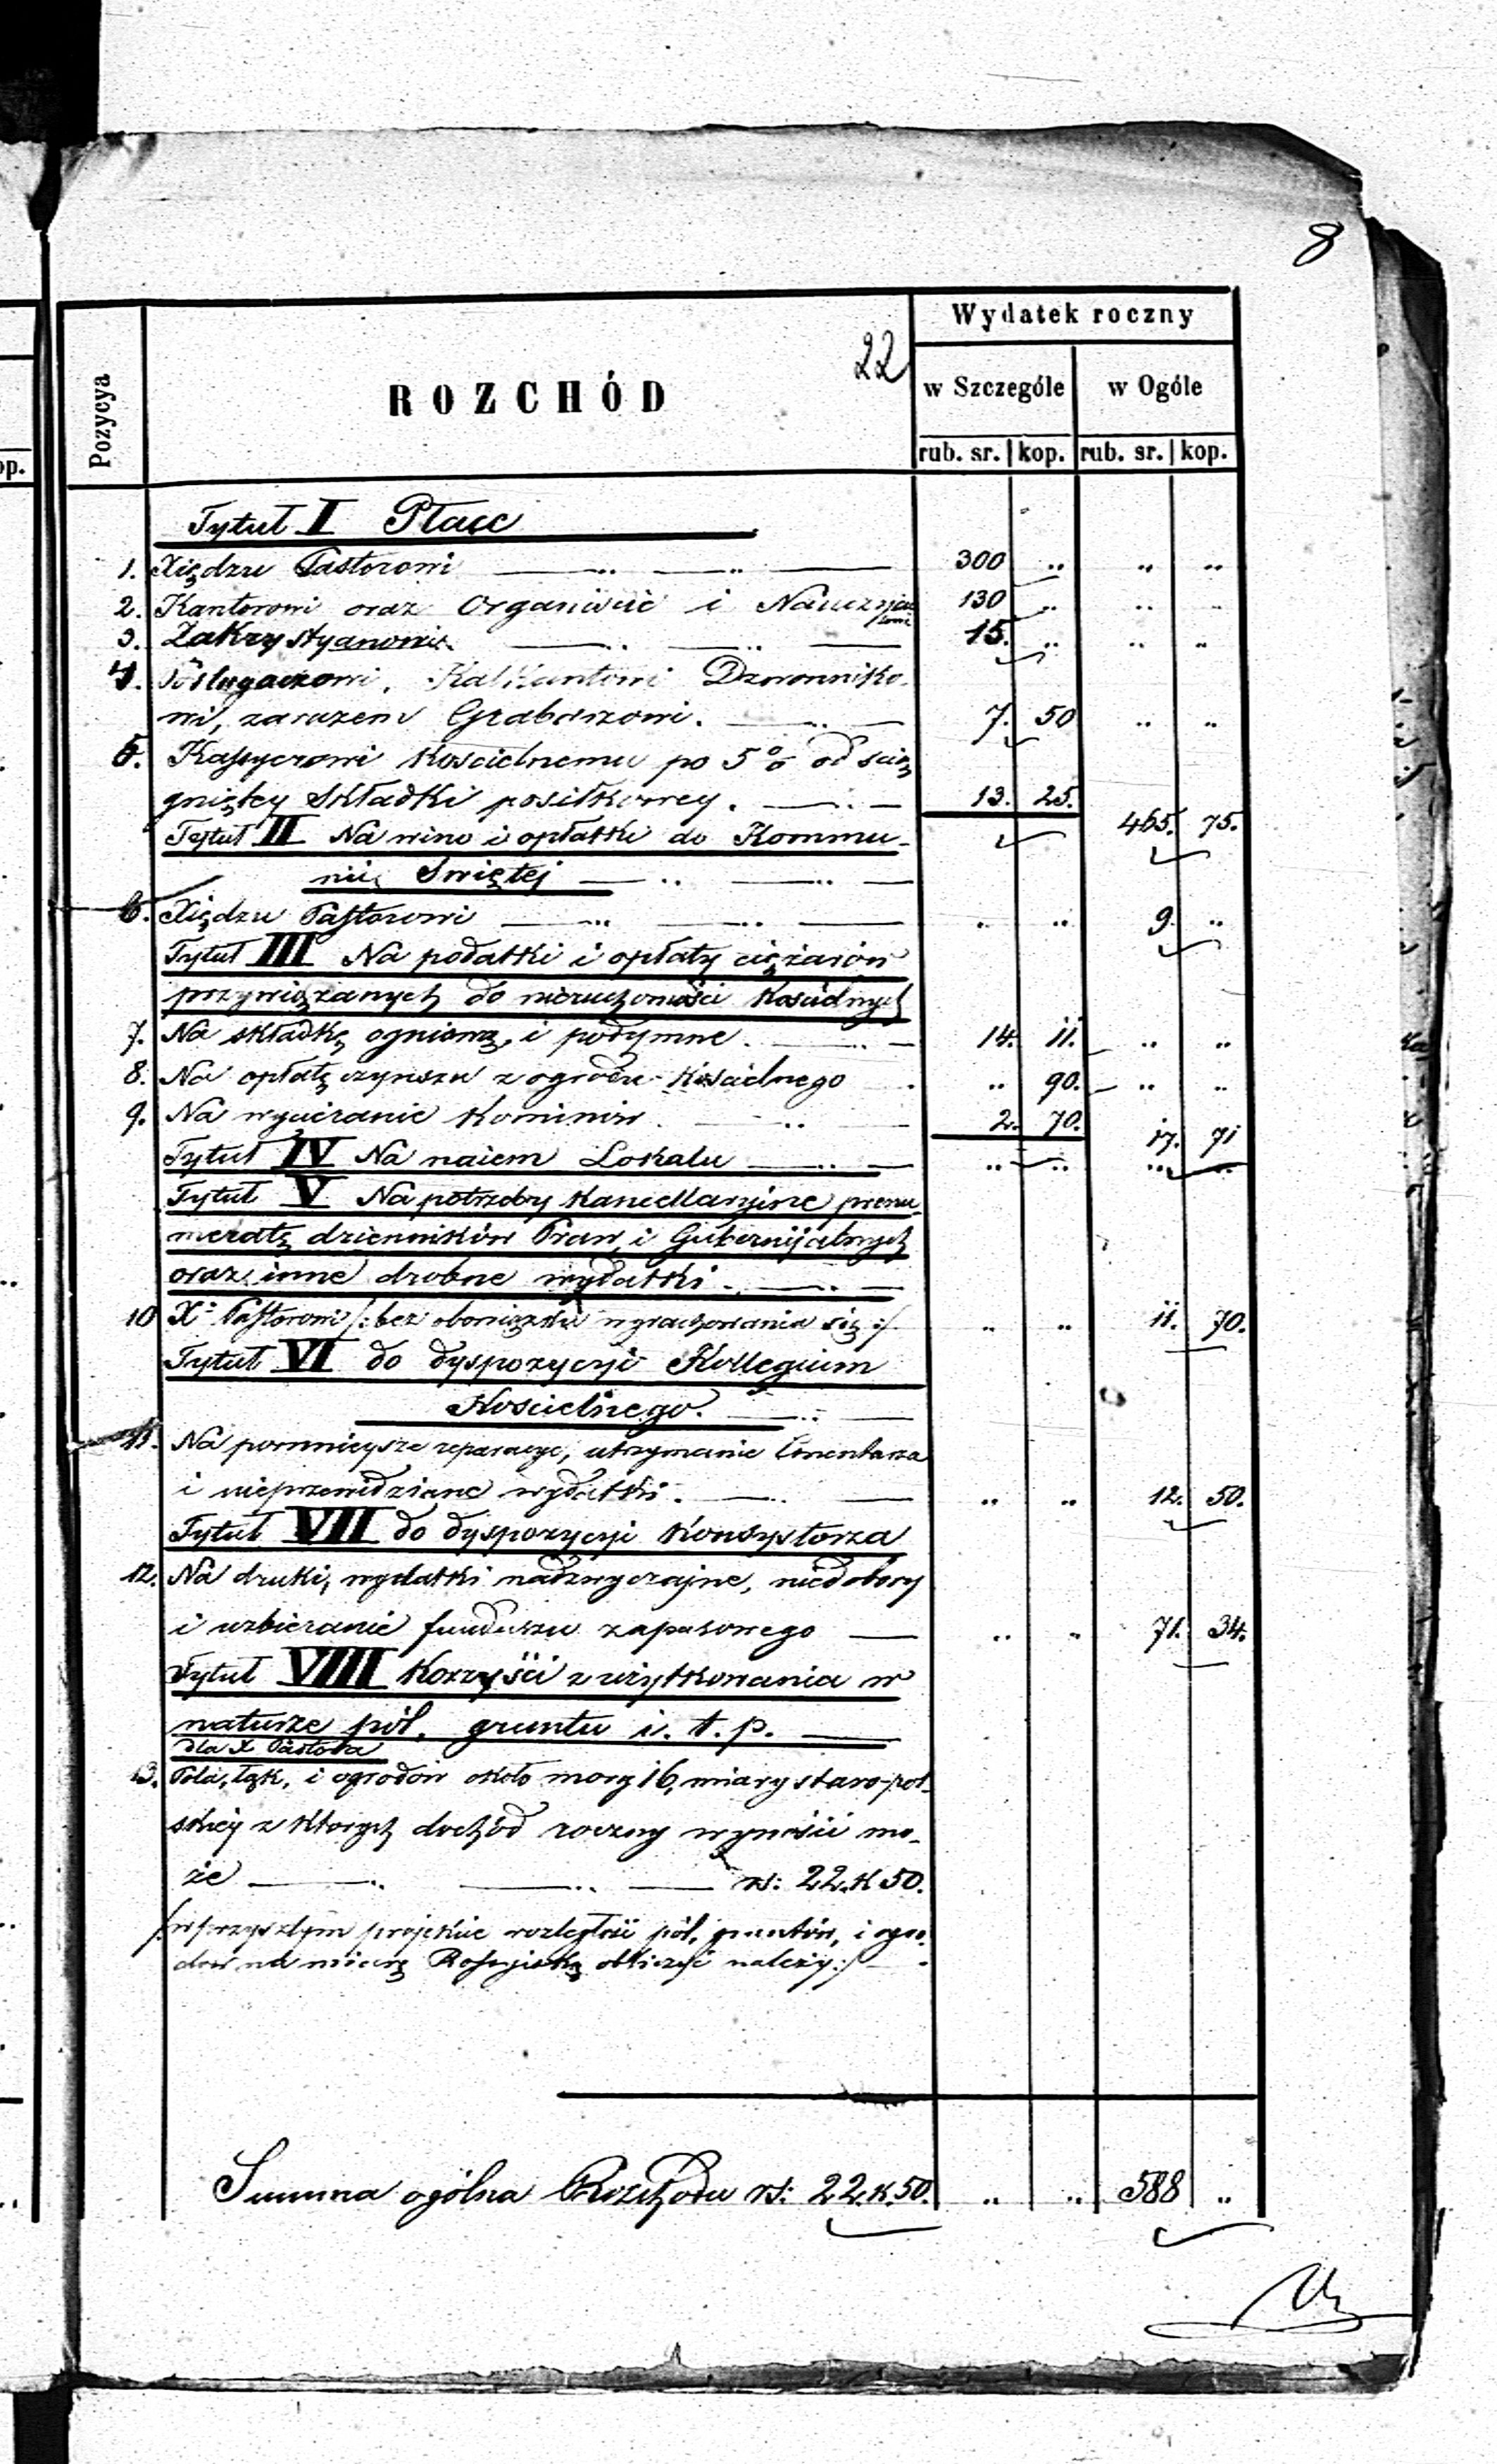 8
op.
Pozycya
ROZCHÓD
22
Wydatek roczny
w Szczególe w Ogóle
rub. sr. kop. rub. sr. kop.
Tytuł I Płace
1. Xiędzu Pastorowi 300 .. .. ..
2. Kantorowi oraz Organiście i Nauczycie 130 .. .. ..
lowi
3. Zakrystyanowi 15. .. .. ..
4. Posługaczowi, Kalkantowi Dzwonniko-
wi, zarazem Grabarzowi. 7. 50 .. ..
5. Kassyerowi Kościelnemu po 5% od ścią
gniętey Składki posiłkowey. 13. 25. 465. 75.
Tytuł II Na wino i opłatki do Kommu-
nii Swiętej
6. Xiędzu Pastorowi .. .. 9. ..
Tytuł III Na podatki i opłaty ciężarów
przywiązanych do nieruchomości Kościelnych
7. Na składkę ogniową, i podymne. 14. 11. .. ..
8. Na opłatę czynszu z ogrodu Kościelnego .. 90. .. ..
9. Na wycieranie Kominów. 2. 70. 17. 71
Tytuł IV Na naiem Lokalu .. .. .. ..
Tytuł V Na potrzeby Kancellaryine prenu-
meratę dzienników Praw, i Gubernijalnych
oraz inne drobne wydatki
10 X. Pastorowi /: bez obowiązku wyrachowania się :/ .. .. 11. 70.
Tytuł VI do dyspozycyi Kollegium
Kościelnego.
11. Na pomnieysze reparacye, utrzymanie Cmentarza
i nieprzewidziane wydatki. .. .. 12. 50.
Tytuł VII do dyspozycyi Konsystorza
12. Na druki, wydatki nadzwyczajne, niedobory
i uzbieranie funduszu zapasowego .. .. 71. 34.
Tytuł VIII Korzyści z użytkowania w
naturze pól, gruntu i. t. p.
dla X Pastora
13. Pola, łąk, i ogrodów około morg 16, miary staro-pol-
skiey z których dochód roczny wynosić mo-
że rs: 22. k 50.
/: w przyszłym projekcie rozległość pól, gruntów, i ogro-
dów na miarę Rossyjską obliczyć należy :/
Summa ogólna Rozchodu rs: 22. k. 50. .. .. 588 ..